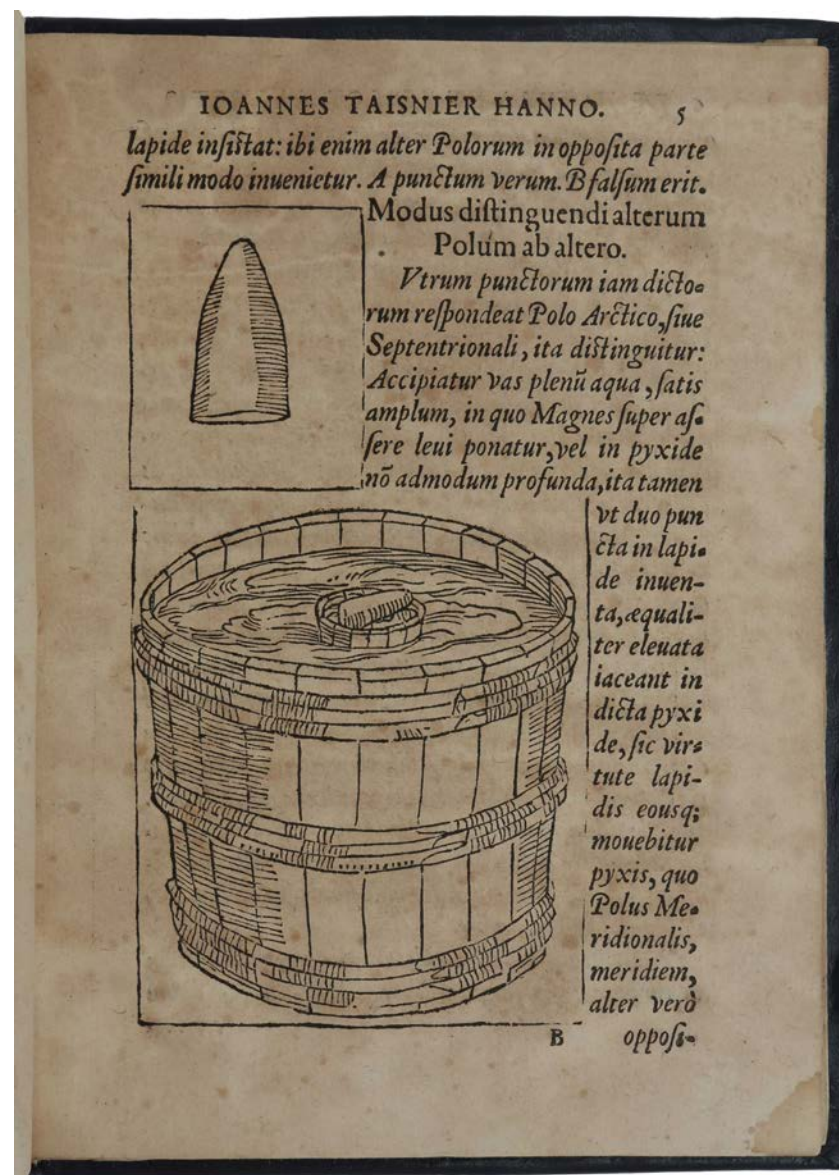 IOANNES TAISNIER HANNO. 5
lapide insiſtat: ibi enim alter Polorum in oppoſita parte
ſimili modo inuenietur. A punctum verum. B falſum erit.
Modus diſtinguendi alterum
Polum ab altero.
Vtrum punctorum iam dicto-
rum reſpondeat Polo Arctico, ſiue
Septentrionali, ita diſtinguitur:
Accipiatur vas plenũ aqua, ſatis
amplum, in quo Magnes ſuper aſ-
ſere leui ponatur, vel in pyxide
nõ admodum profunda, ita tamen
vt duo pun
cta in lapi-
de inuen-
ta, æquali-
ter eleuata
iaceant in
dicta pyxi
de, ſic vir-
tute lapi-
dis eousq;
mouebitur
pyxis, quo
Polus Me-
ridionalis,
meridiem,
alter verò
B oppoſi-